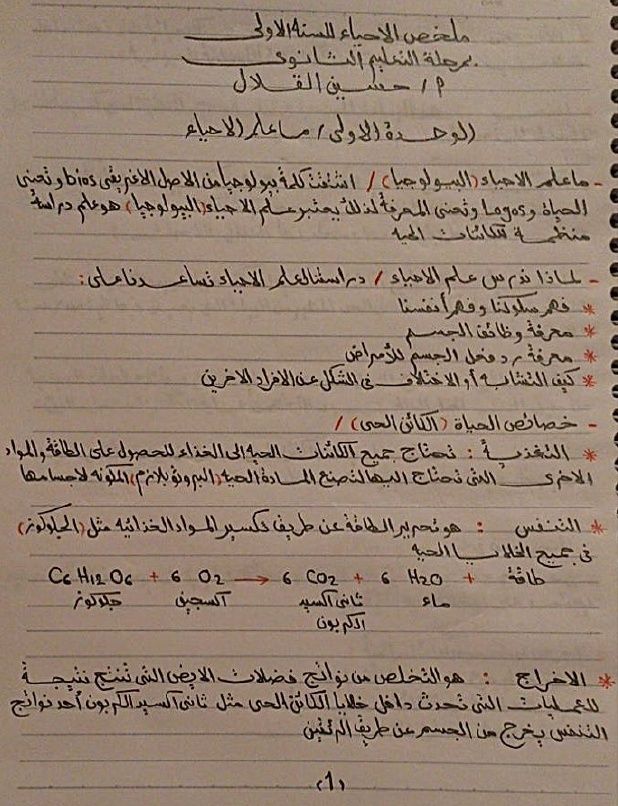 ملخص الاحياء للسنة الاولى
بمرحلة التعليم الثانوي
م/ حسين القلال
الوحدة الاولى / ما علم الاحياء
- ما علم الاحياء (البيولوجيا) / اشتقت كلمة بيولوجيا من الاصل الاغريقي bios وتعني
الحياة و Logos وتعني المعرفة لذلك يعتبر علم الاحياء (البيولوجيا) هو علم دراسة
منظمة للكائنات الحية
- لماذا ندرس علم الاحياء / دراستنا لعلم الاحياء تساعدنا على :
* فهم سلوكنا وفهم أنفسنا
* معرفة وظائف الجسم
* معرفة رد فعل الجسم للأمراض
* كيف التشابه أو الاختلاف في الشكل عن الافراد الاخرين
- خصائص الحياة (الكائن الحي) /
* التغذية : تحتاج جميع الكائنات الحية الى الغذاء للحصول على الطاقة والمواد
الاخرى التي تحتاج اليها لتصنع المادة الحية (البروتوبلازم) المكونه لاجسامها
* التنفس : هو تحرير الطاقة عن طريق تكسير المواد الغذائيه مثل (الجلوكوز)
في جميع الخلايا الحيه
C6 H12 O6 + 6 O2 → 6 CO2 + 6 H2O + طاقة
جلوكوز اكسجين ثاني اكسيد ماء
الكربون
* الاخراج : هو التخلص من نواتج فضلات الايض التي تنتج نتيجة
للعمليات التي تحدث داخل خلايا الكائن الحي مثل ثاني اكسيد الكربون أحد نواتج
التنفس يخرج من الجسم عن طريق الرئتين
(1)